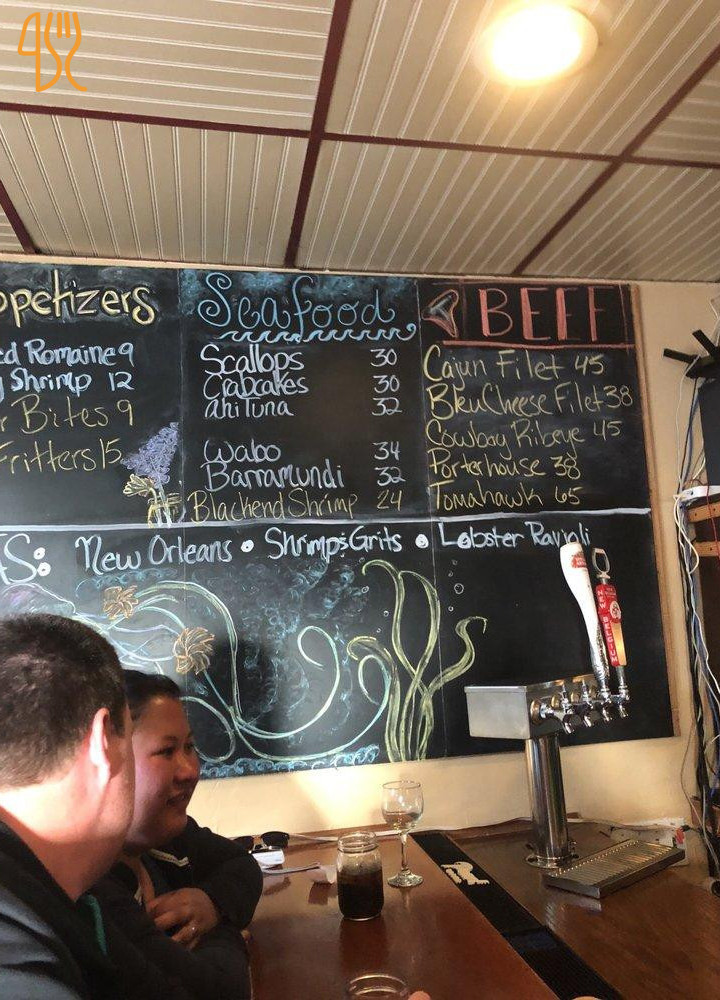 ppetizers
ed Romaine 9
Shrimp 12
Bites 9
Fritters 15
Seafood
Scallops 30
Crabcakes 30
ahi Tuna 32
Wabo 34
Barramundi 32
Blackend Shrimp 24
BEEF
Cajun Filet 45
Bleu Cheese Filet 38
Cowboy Ribeye 45
Porterhouse 38
Tomahawk 65
S: New Orleans • Shrimp & Grits • Lobster Ravioli
NEW BELGIUM